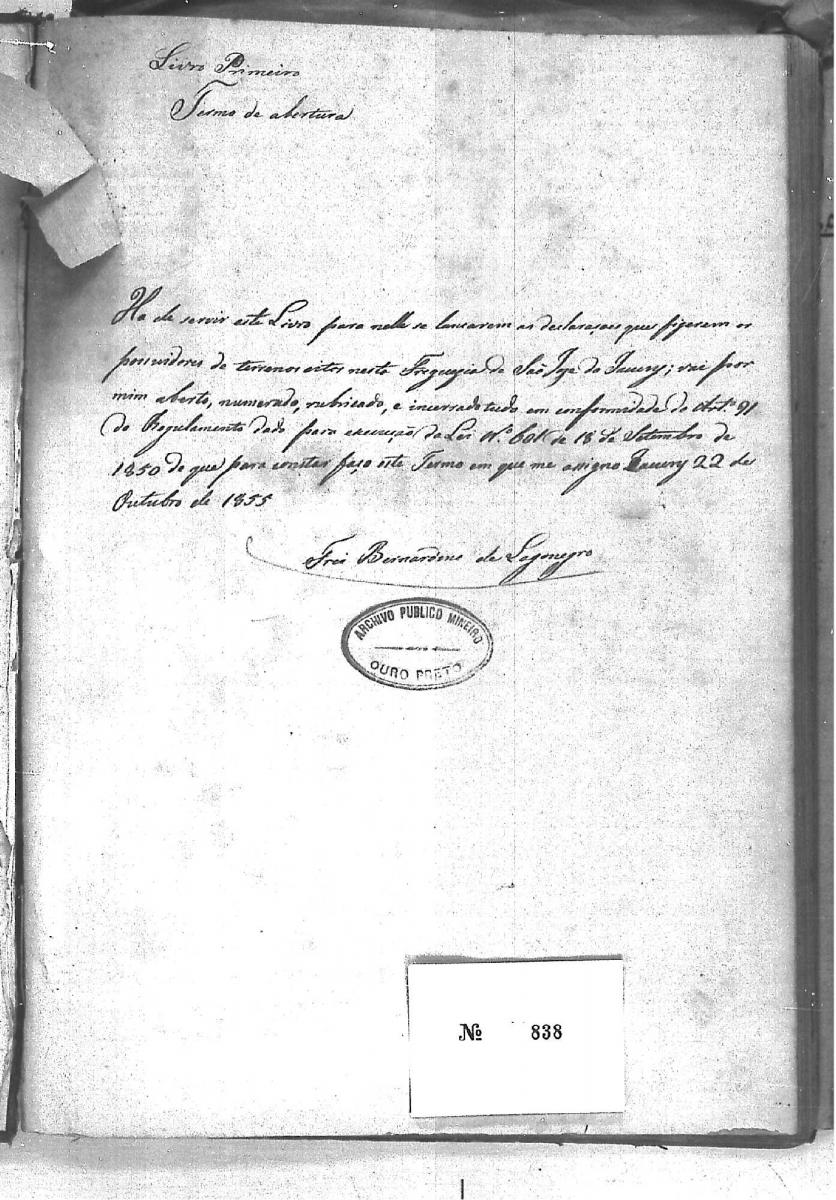 Livro Primeiro
Termo de abertura
Ha de servir este Livro para nelle se lancarem as declarações que fizerem os
possuidores de terrenos sitos nesta Freguezia de São Joze do Jacury; vai por
mim aberto, numerado, rubricado, e incerrado tudo em conformidade do Art.º 91
do Regulamento dado para execução da Lei N.º 601 de 18 de Setembro de
1850 do que para constar faço este Termo em que me assigno Jacury 22 de
Outubro de 1855
Frei Bernardino de Lagonegro
ARCHIVO PUBLICO MINEIRO
OURO PRETO
№ 838